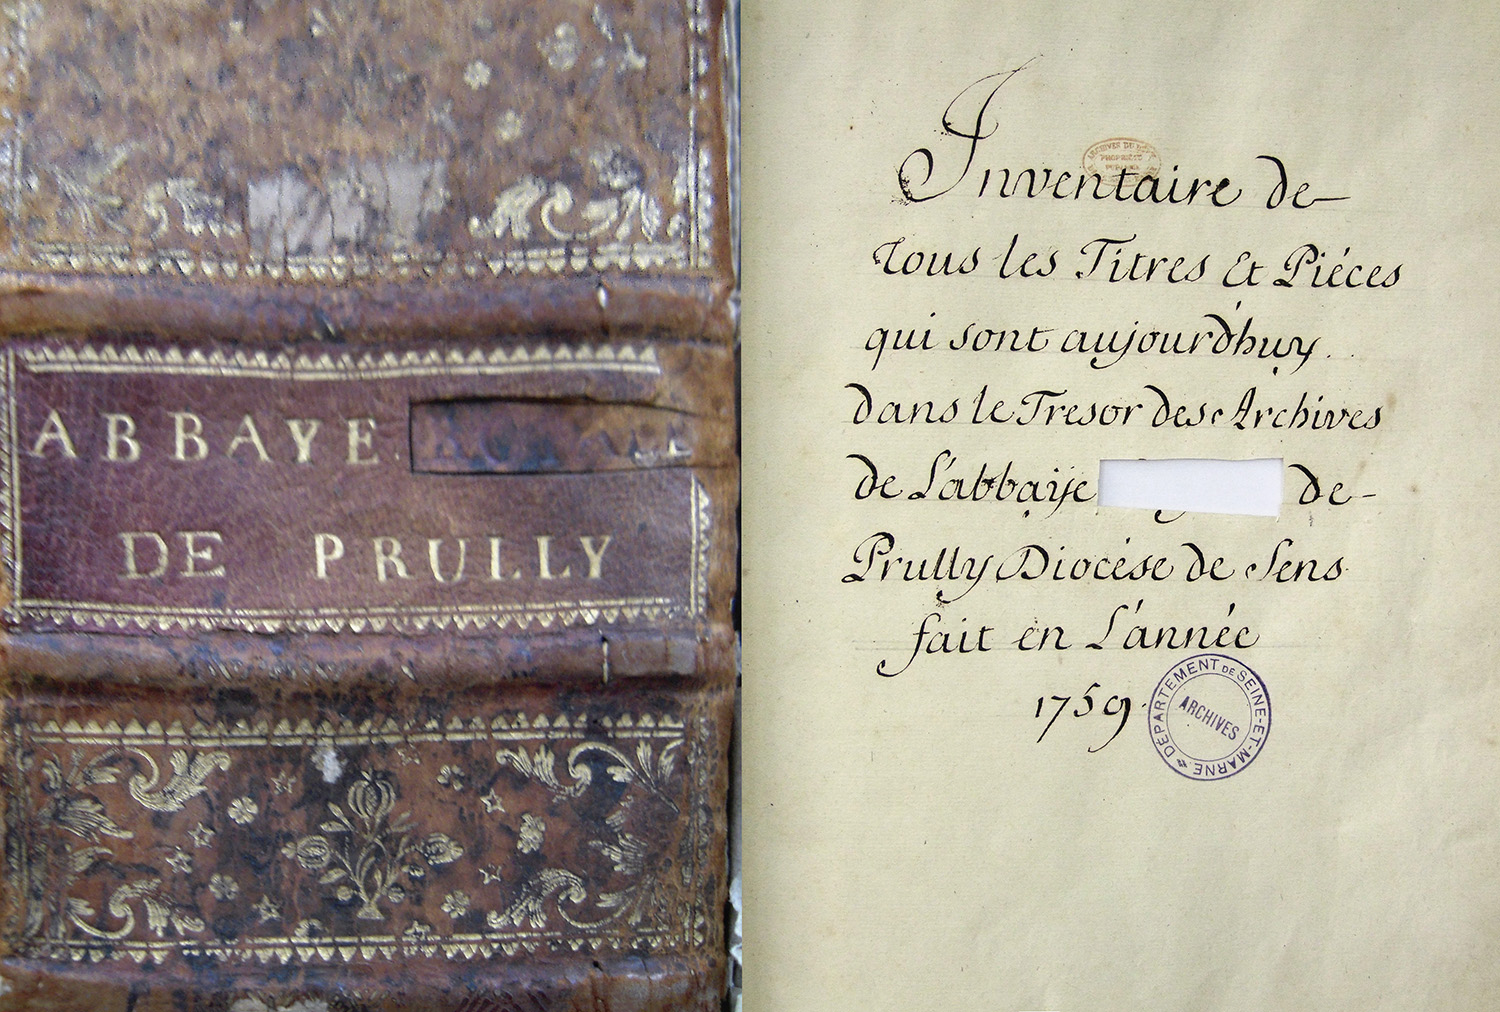 ABBAYE
DE PRULLY
Inventaire de
tous les Titres Et Piéces
qui sont aujourd'huy
dans le Tresor des Archives
de L'abbaye de
Prully Diocése de Sens
fait en L'année
1759.
DÉPARTEMENT DE SEINE-ET-MARNE
ARCHIVES